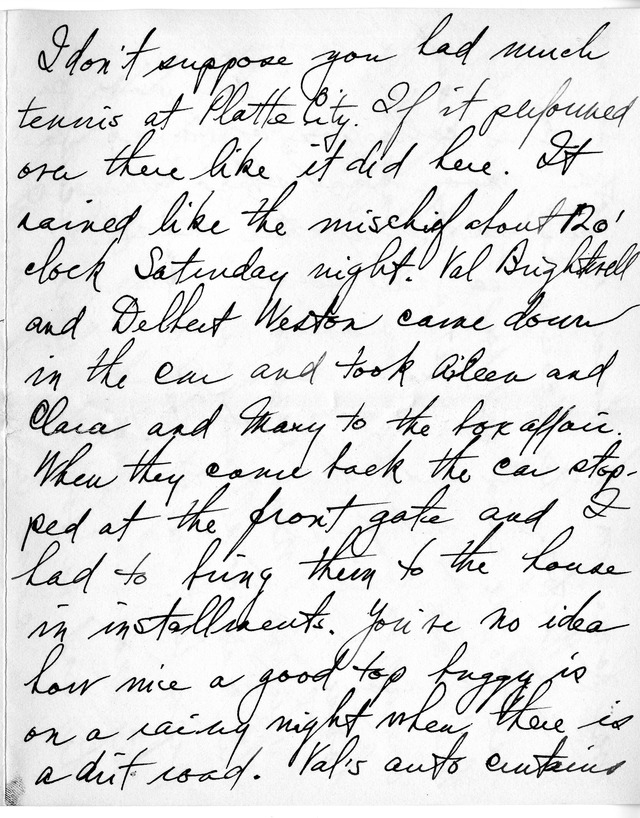 I don't suppose you had much
tennis at Platte City. If it performed
over there like it did here. It
rained like the mischief about 12 o'
clock Saturday night. Val Brightwell
and Delbert Weston came down
in the car and took Aileen and
Clara and Mary to the box affair.
When they came back the car stop-
ped at the front gate and I
had to bring them to the house
in installments. You've no idea
how nice a good top buggy is
on a rainy night when there is
a dirt road. Val's auto curtains